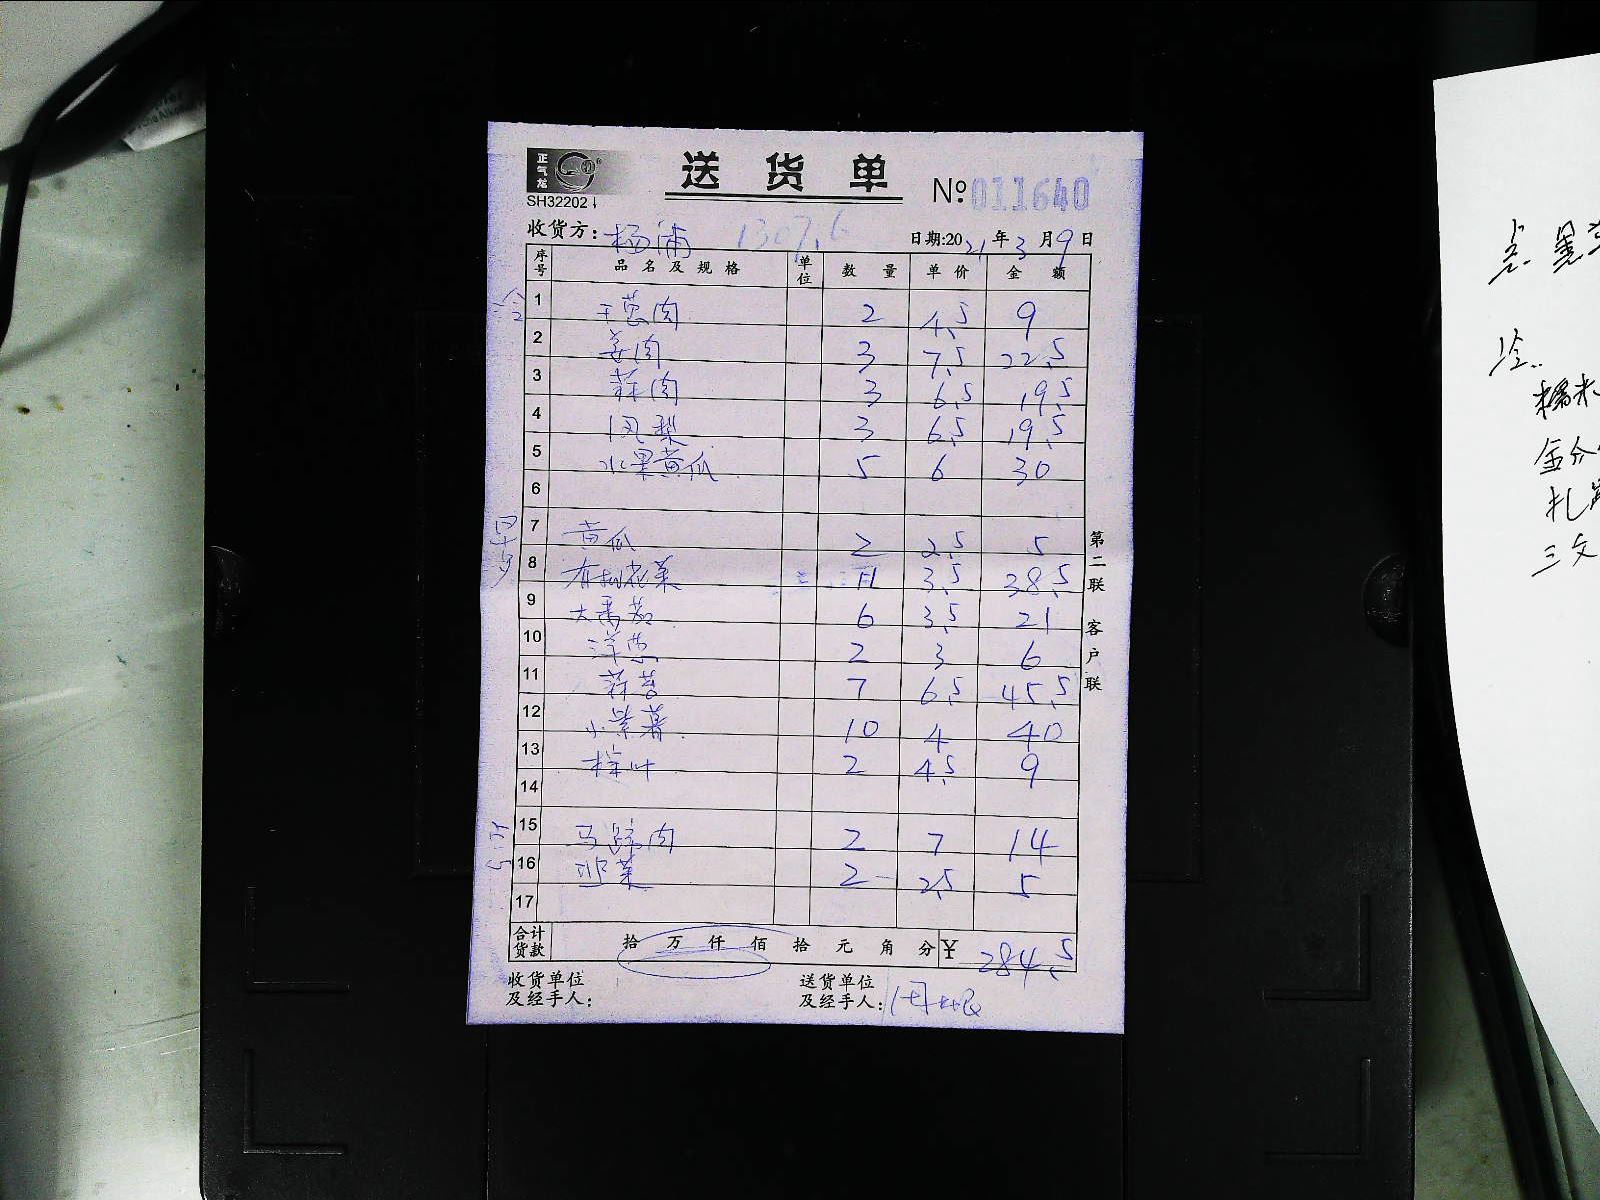 正气龙
送 货 单
№: 011640
SH32202↓
收货方: 杨浦 1307.6 日期:2021年3月9日
序号 品名及规格 单位 数量 单价 金额
冷 1 干葱肉 2 4.5 9
2 姜肉 3 7.5 22.5
3 蒜肉 3 6.5 19.5
4 凤梨 3 6.5 19.5
5 水果黄瓜 5 6 30
6
7 黄瓜 2 2.5 5
8 有机花菜 11 3.5 38.5
9 大番茄 6 3.5 21
10 洋葱 2 3 6
11 6.5 7 45.5
12 小紫薯 10 4 40
13 2 4.5 9
14
15 马蹄肉 2 7 14
16 韭菜 2 2.5 5
17
合计货款 拾 万 仟 佰 拾 元 角 分 ¥ 284.5
收货单位及经手人: 送货单位及经手人:
第二联 客户联
冷..
糯米
三文